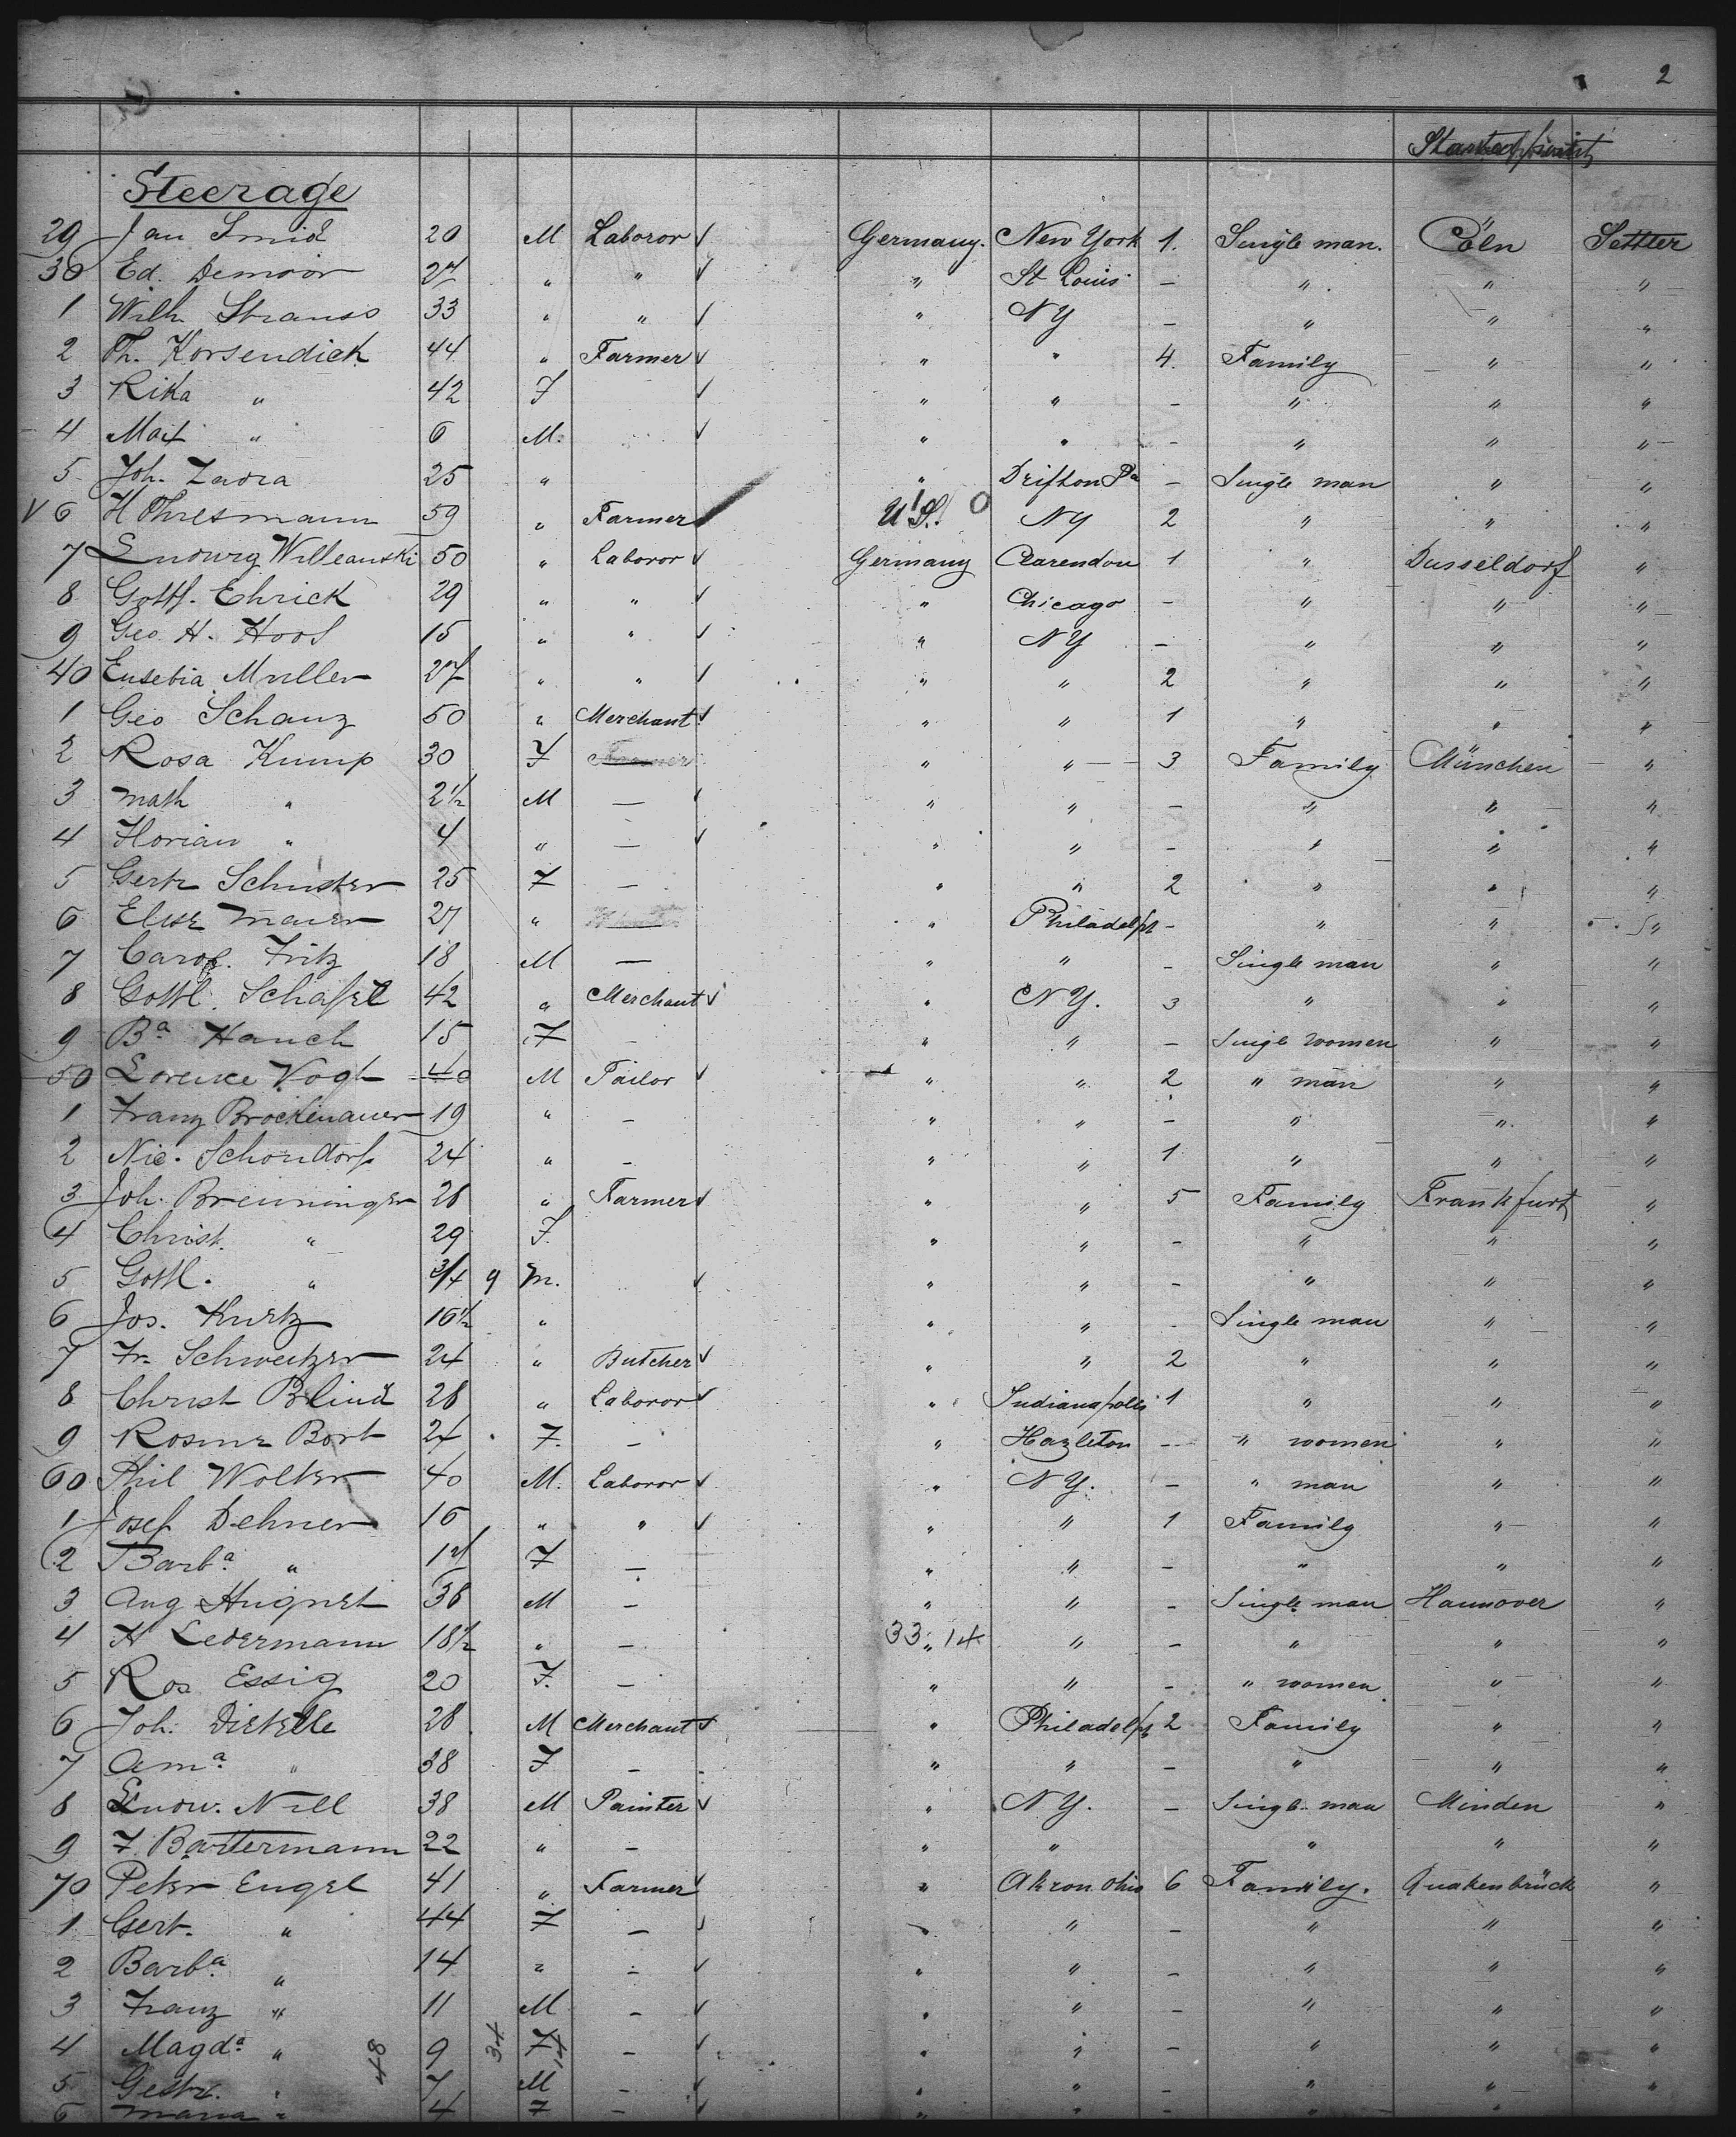 2
Steerage
29 Jan Smid 20 M Laboror √ Germany. New York 1. Single man. Cöln Settler
30 Ed. Demoor 27 " " √ " St Louis - " " "
1 Wilh Strauss 33 " " √ " NY - " " "
2 Th. Korsendick 44 " Farmer √ " " 4. Family " "
3 Rika " 42 F √ " " - " " "
4 Max " 6 M. √ " " - " " "
5 Joh. 25 " " Drifton Pa - Single man " "
√ 6 H 59 " Farmer U.S. NY 2 " " "
7 Ludwig 50 " Laboror √ Germany Clarendon 1 " Dusseldorf "
8 Gottf. Ehrick 29 " " √ " Chicago - " " "
9 Geo H. Hoos 15 " " √ " NY - " " "
40 Eusebia Muller 27 " " √ " " 2 " " "
1 Geo Schanz 50 " Merchant √ " " 1 " " "
2 Rosa Kump 30 F Farmer " " 3 Family München "
3 Math " 2 1/2 M - √ " " - " " "
4 Florian " 4 " - √ " " - " " "
5 Gertr Schuster 25 F - " " 2 " " "
6 Elise Maier 27 " " Philadelph - " " "
7 Carol. Fritz 18 M - " " - Single man " "
8 Gottl. Schäfel 42 " Merchant √ " NY. 3 " " "
9 Ba Hauch 15 F - " " - Single women " "
50 Lorence Vogt 40 M Tailor √ " " 2 " man " "
1 Franz Brockenauer 19 " - " " - " " "
2 Nic. Schondorf 24 " - " " 1 " " "
3 Joh. Breuninger 28 " Farmer √ " " 5 Family Frankfurt "
4 Christ. " 29 F. " " - " " "
5 Gottl. " 3/4 9 M. √ " " - " " "
6 Jos. Kurtz 16 1/2 " " " - Single man " "
7 Fr. Schweitzer 24 " Butcher √ " " 2 " " "
8 Christ Blind 28 " Laboror √ " Indianapolis 1 " " "
9 Rosine Bort 24 F. - " Hazleton - " women " "
60 Phil Wolter 40 M. Laboror √ " NY. - " man " "
1 Josef Dehner 16 " " √ " " 1 Family " "
2 Barba " F - " " - " " "
3 Aug 38 M - " " - Single man Hannover "
4 H Ledermann 18 1/2 " - 33 " 14 " - " " "
5 Ros Essig 20 F. - " " - " women " "
6 Joh. 28 M Merchant √ " Philadelph 2 Family " "
7 Ama " 38 F - " " - " " "
8 Ludw. Nill 38 M Painter √ " NY. - Single man Minden "
9 F. Bartermann 22 " - " " " " "
70 Peter Engel 41 " Farmer √ " Akron Ohio 6 Family. Quakenbrück "
1 Gert. " 44 F - √ " " - " " "
2 Barba " 14 " - √ " " - " " "
3 Franz " 11 M - √ " " - " " "
4 Magda " 48 9 34 F 14 - √ " " - " " "
5 " 7 M - √ " " - " " "
6 Maria " 4 F - √ " " - " "